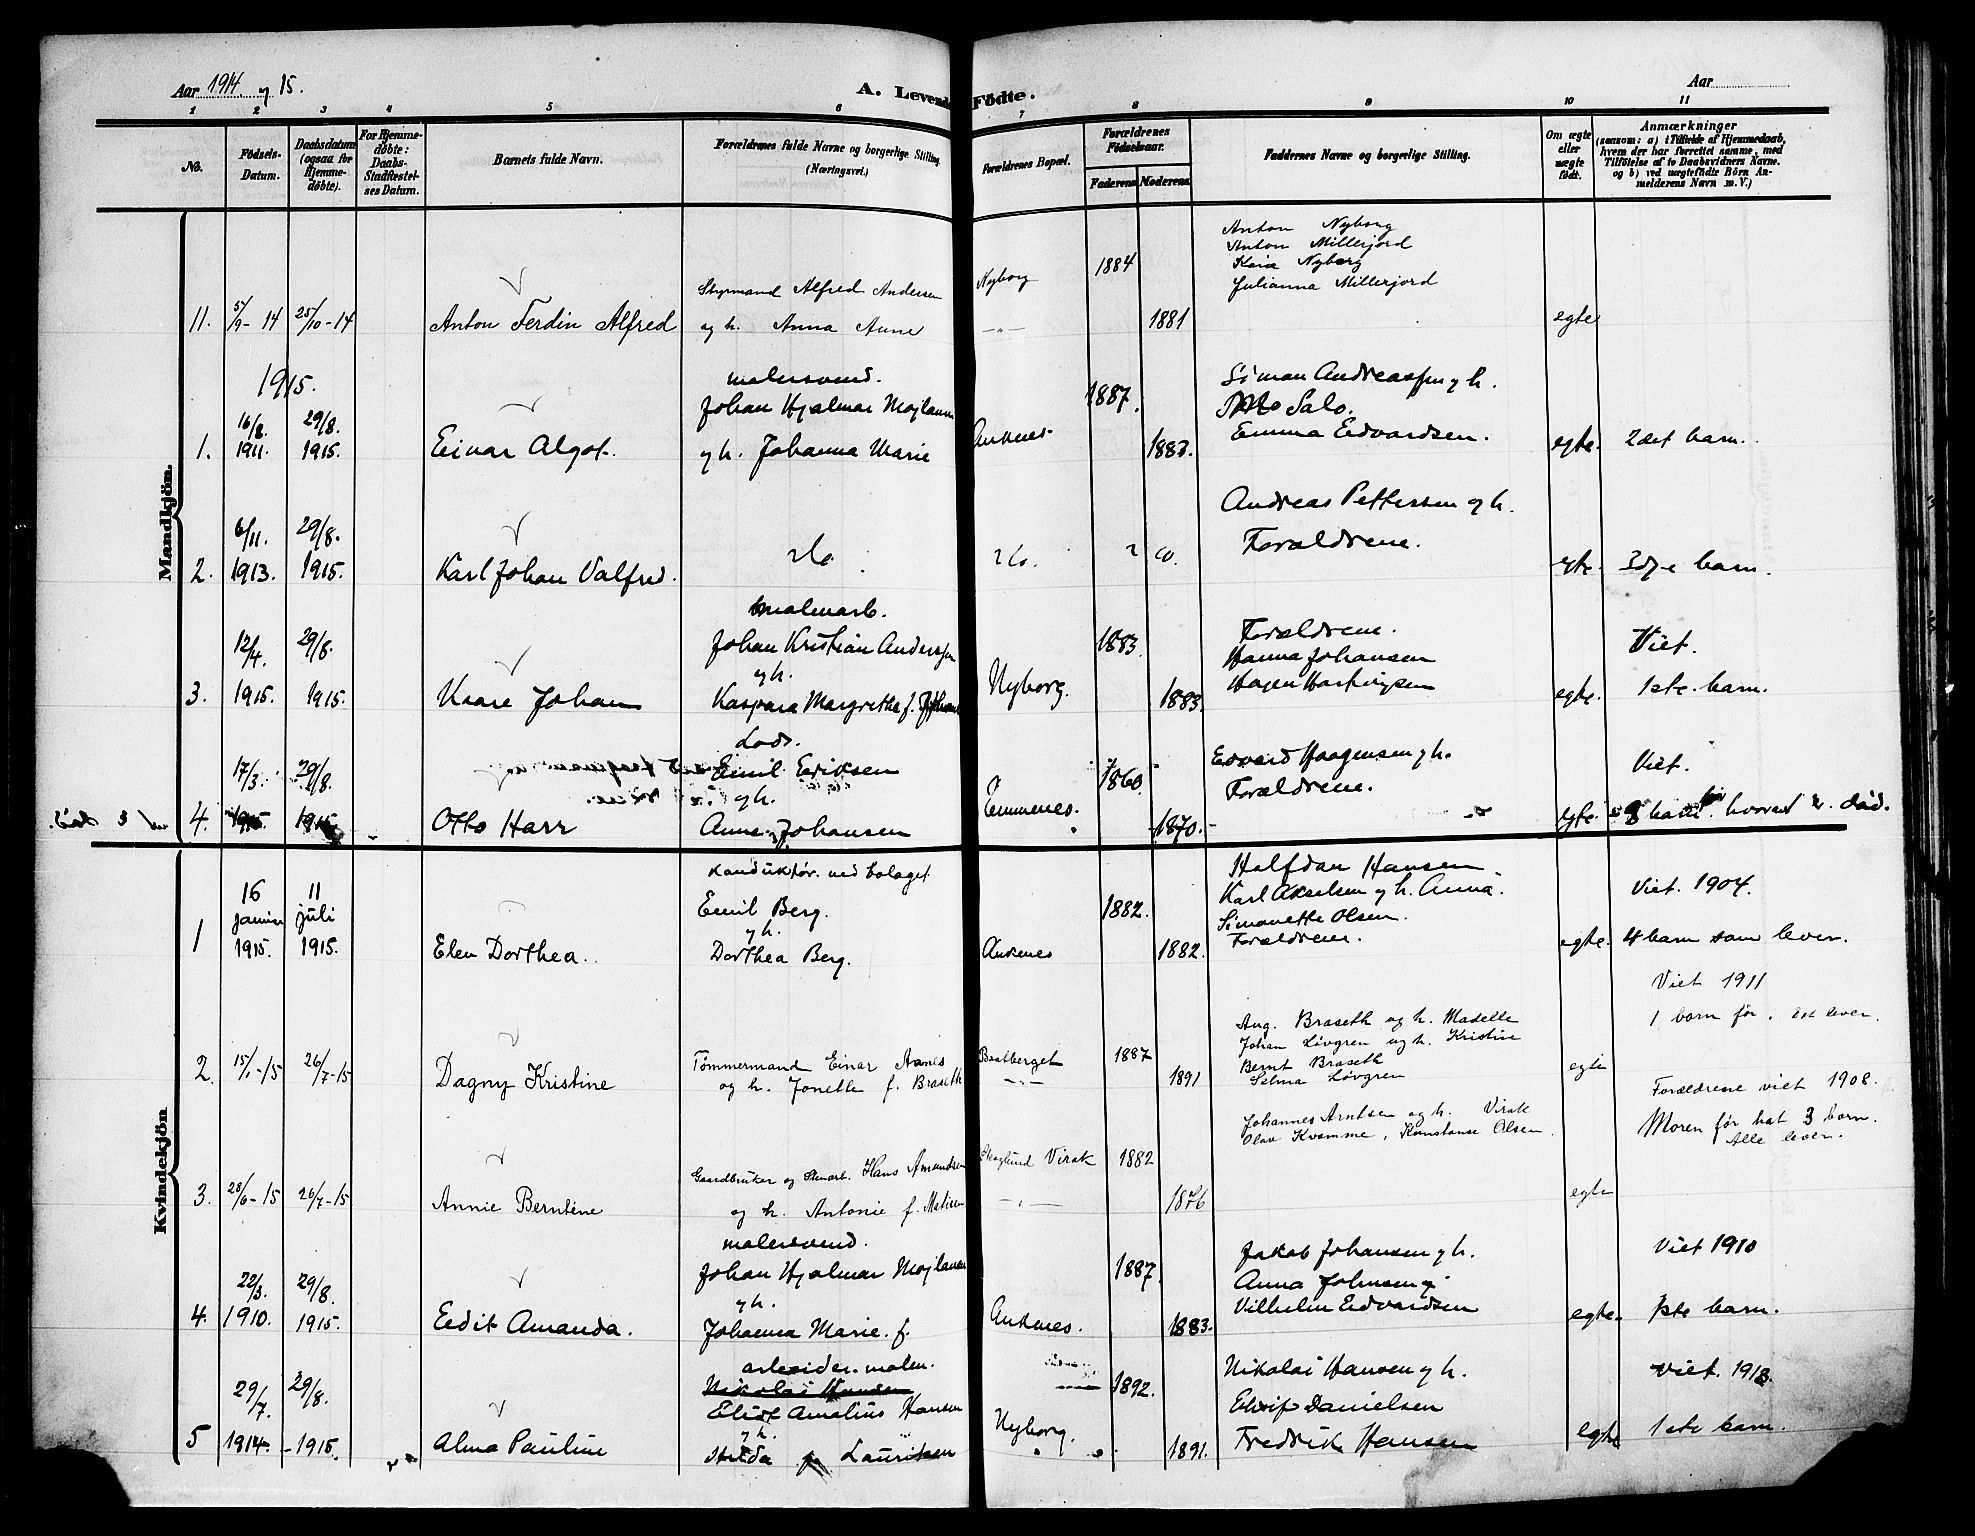 Aar 1914 og 15.
A. Levende Födte.
Aar
1 2 3 4 5 6 7 8 9 10 11
No.
Födsels-Datum.
Daabsdatum (ogsaa for Hjemmedöbte).
For Hjemmedöbte: Daabs-Stadfæstelses Datum.
Barnets fulde Navn.
Forældrenes fulde Navne og borgerlige Stilling. (Næringsvei.)
Forældrenes Bopæl.
Forældrenes Födselsaar.
Faderens Moderens
Faddernes Navne og borgerlige Stilling.
Om ægte eller uægte födt.
Anmærkninger
(saasom: a) i Tilfælde af Hjemmedaab, hvem der har forrettet samme, med Tilföielse af to Daabsvidners Navne. og b) ved uægtefödte Börn Anmelderens Navn m. V.)
Mandkjön.
Anton Nyborg
Anton Millerjord
Kaia Nyborg
Julianna Millerjord
Styrmand Alfred Andersen Nyborg 1884
11. 5/9-14 25/10-14 Anton Ferdin Alfred og h. Anna Aune -"- 1881 egte
1915.
malersvend.
Johan Hjalmar Mojlanen 1887. Simon Andreassen og h.
Salo.
16/8. 29/8.
1. 1911. 1915. Einar Algot. og h. Johanna Marie Ankenes 1883. Emma Edvardsen. egte. 2det barn.
Andreas Pettersen og h.
6/11. 29/8. Forældrene.
2. 1913. 1915. Karl Johan Valfred. do. do. do. egte. 3dje barn.
malmarb.
12/4. 29/8. Johan Kristian Anderssen 1883. Forældrene. Viet.
og h. Hanna Johansen
3. 1915. 1915. Kaare Johan Kaspara Margrethe f. Nyborg. 1883. egte. 1ste barn.
Lods.
17/3. 29/8. Emil Eriksen 1860. Edvard Haagensen og h. Viet.
og h. Forældrene.
4. 1915. 1915. Otto Harr Anne Johansen Temmenes. 1870. egte. 8 barn hvorav 2 död.
Kvindekjön
konduktør ved bolaget Halfdan Hansen
16 11 Emil Berg. 1882. Karl Akselsen og h. Anna. Viet. 1904.
januar juli og h. Simonette Olsen.
1 1915. 1915. Elen Dorthea. Dorthea Berg. Ankenes 1882. Forældrene. egte. 4 barn som lever.
Viet 1911
1 barn før, det lever.
Aug. Braseth og h. Madelle
Johan Løvgren og h. Kristine
2. 15/1-15 26/7-15 Dagny Kristine Tømmermand Einar Aanes Baatberget 1887 Bernt Braseth egte
og h. Jonette f. Braseth -"- 1891 Selma Løvgren
Forældrene viet 1908.
Johannes Arntsen og h. Virak Moren før hat 3 barn.
Olav Kvamme, Konstanse Olsen. Alle lever.
Gaardbruker og Stenarb. Hans Amundsen Skoglund Virak 1882
3. 28/6-15 26/7-15 Annie Berntine og h. Antonie f. Matisen -"- 1876 egte
malersvend.
22/3. 29/8. Johan Hjalmar Mojlanen 1887. Jakob Johansen og h. Viet 1910
og h. Anna Johnsen og
4. 1910. 1915. Edit Amanda. Johanna Marie. f. Ankenes. 1883. Vilhelm Edvardsen egte. 1ste barn.
arbeider. malm.
29/7. 29/8. Nikolai Hansen 1892. Nikolai Hansen og h. Viet. 1913.
Amelius Hansen Danielsen
og h.
5 1914. 1915. Alma Pauline Hilda Lauritsen Nyborg. 1891. Fredrik Hansen egte 1ste barn.